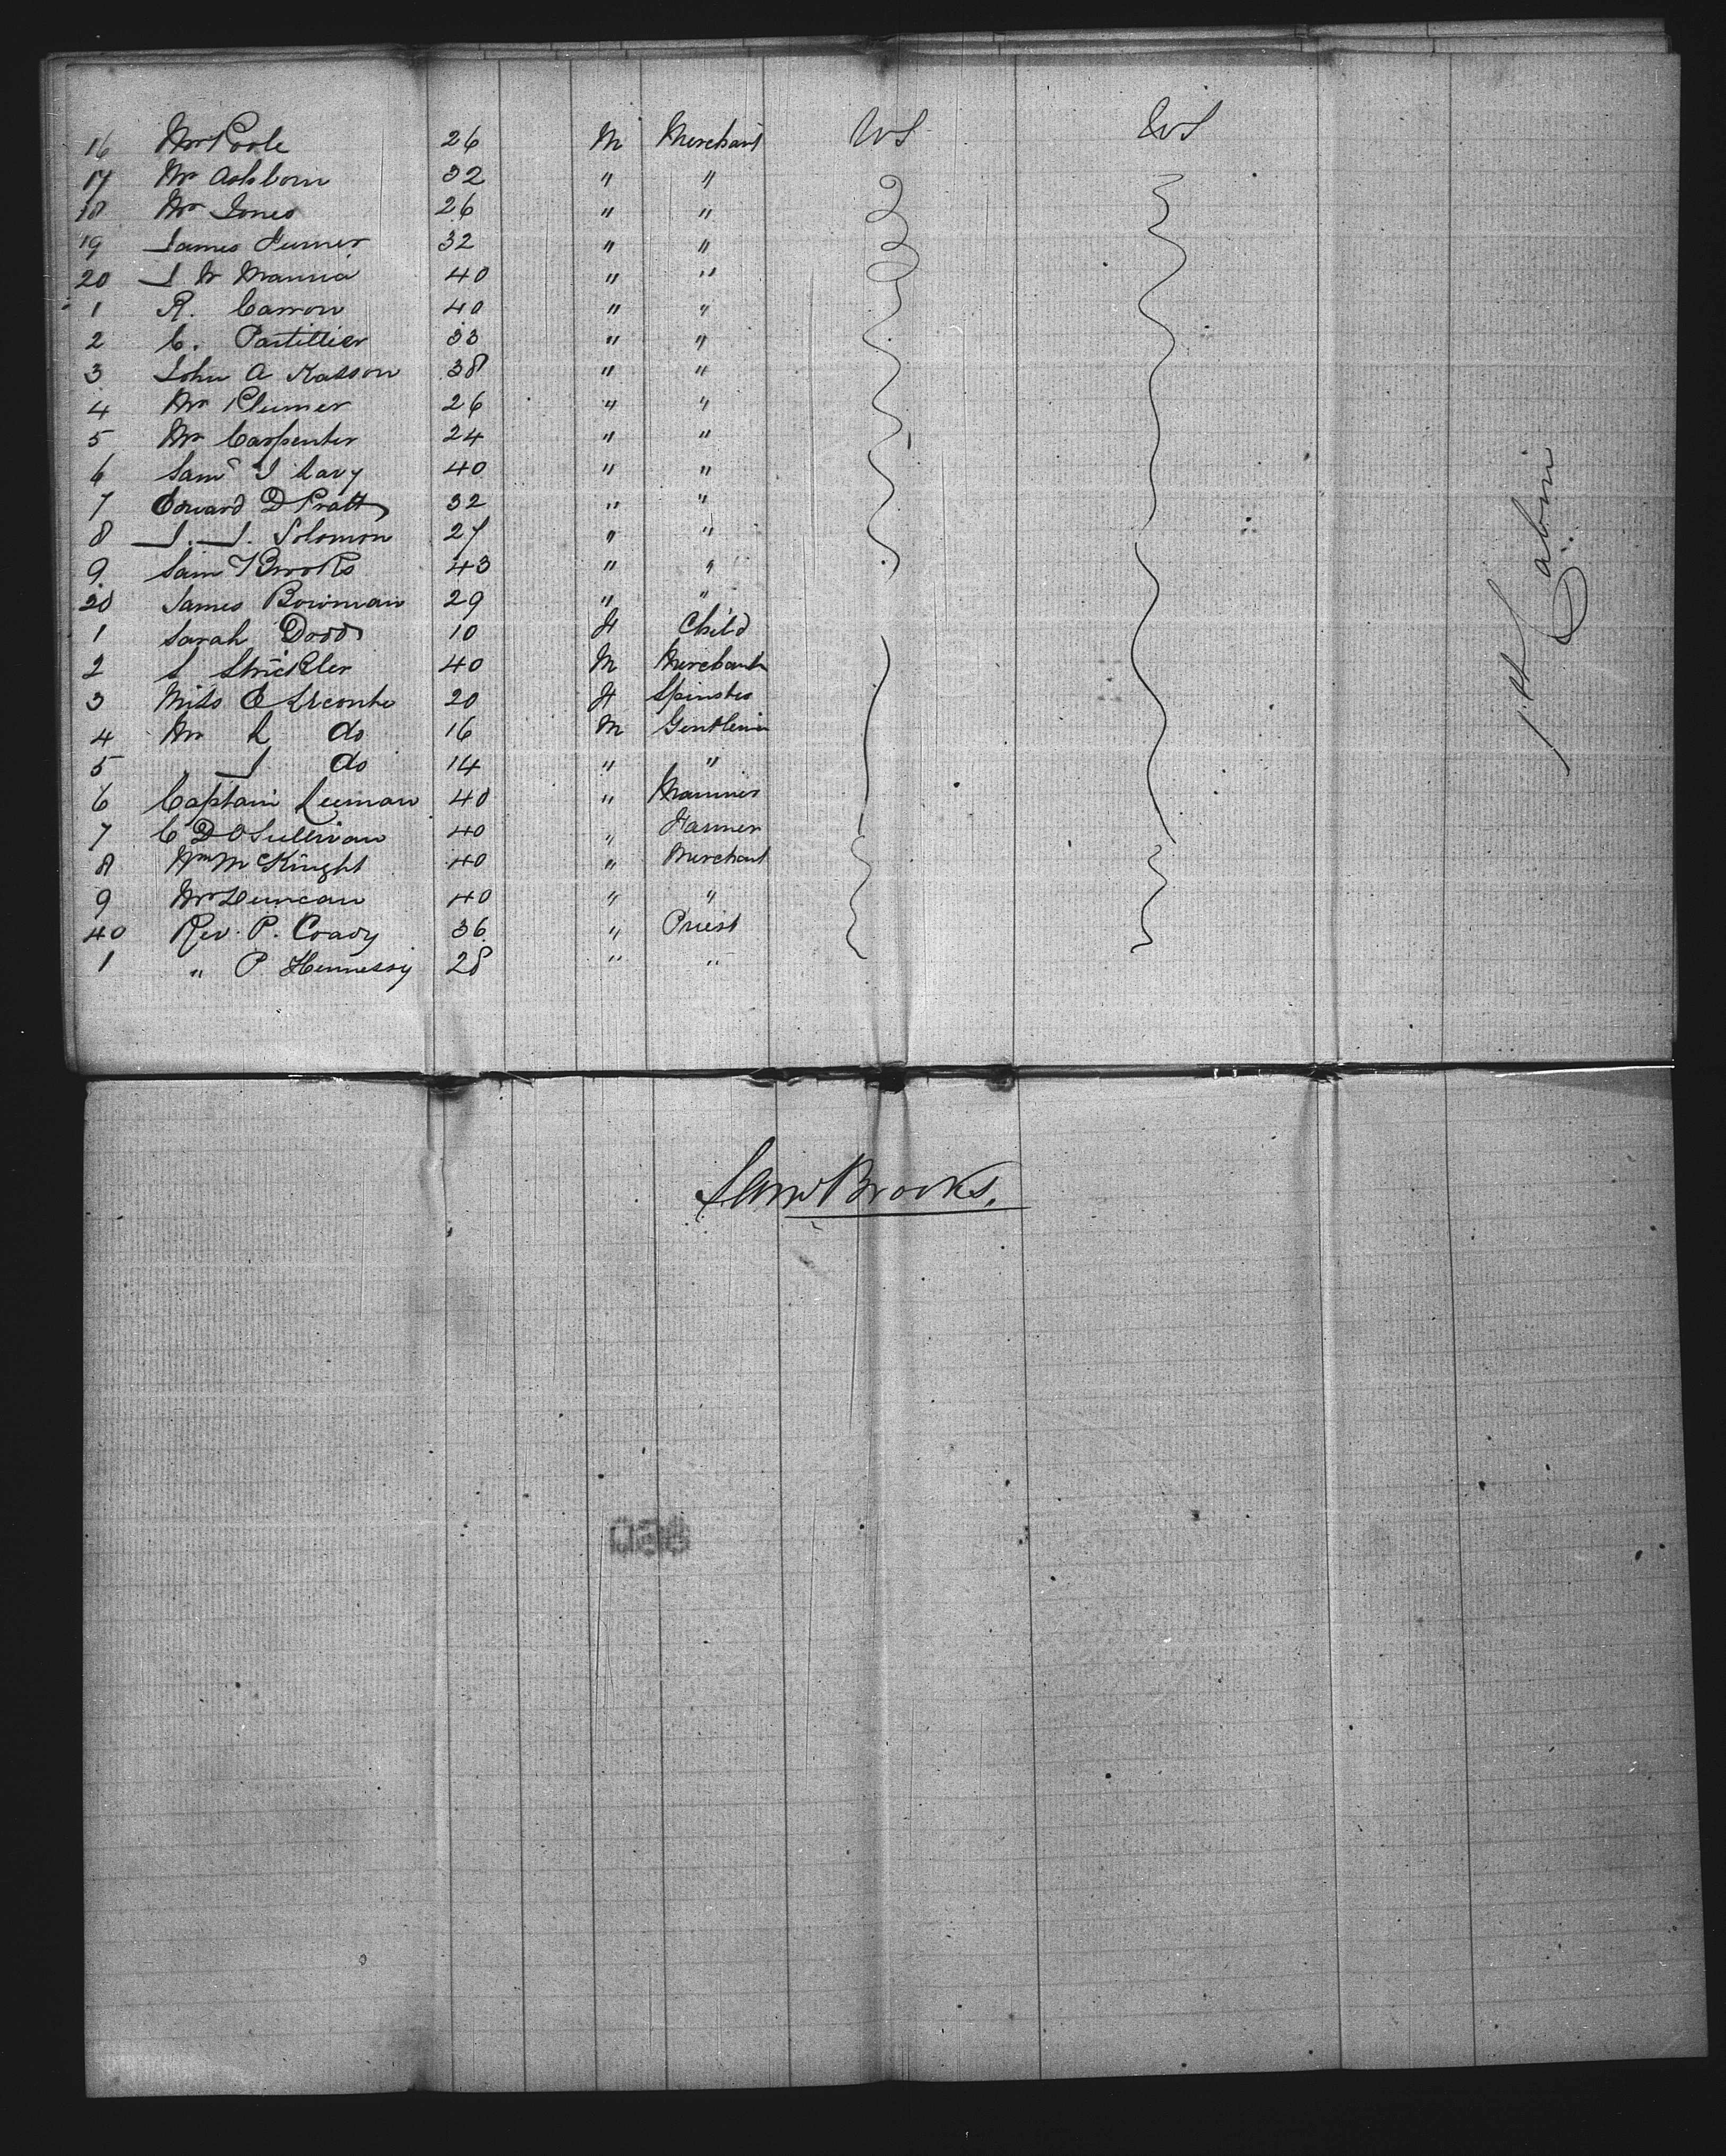 16 Mr Poole 26 M Merchant US US
17 Mr Ashborn 32 " "
18 Mr Jones 26 " "
19 James Turner 32 " "
20 J W 40 " "
1 R. Carron 40 " "
2 C. Partillier 33 " "
3 John A Kasson 38 " "
4 Mr Plumer 26 " "
5 Mr Carpenter 24 " "
6 Saml J Cary 40 " "
7 Edward D Pratt 32 " "
8 J. J. Solomon 27 " "
9 Sam Brooks 43 " "
30 James Bowman 29 " "
1 Sarah Dodd 10 F Child
2 S Strickler 40 M Merchant
3 Miss E 20 F Spinster
4 Mr L do 16 M Gentleman
5 J do 14 " "
6 Captain Leeman 40 " Mariner
7 C D OSullivan 40 " Farmer
8 Wm McKnight 40 " Merchant
9 Mr Duncan 40 " "
40 Rev. P. Coady 36 " Priest
1 " P Hennessy 28 " "
1st Cabin
Saml Brooks.